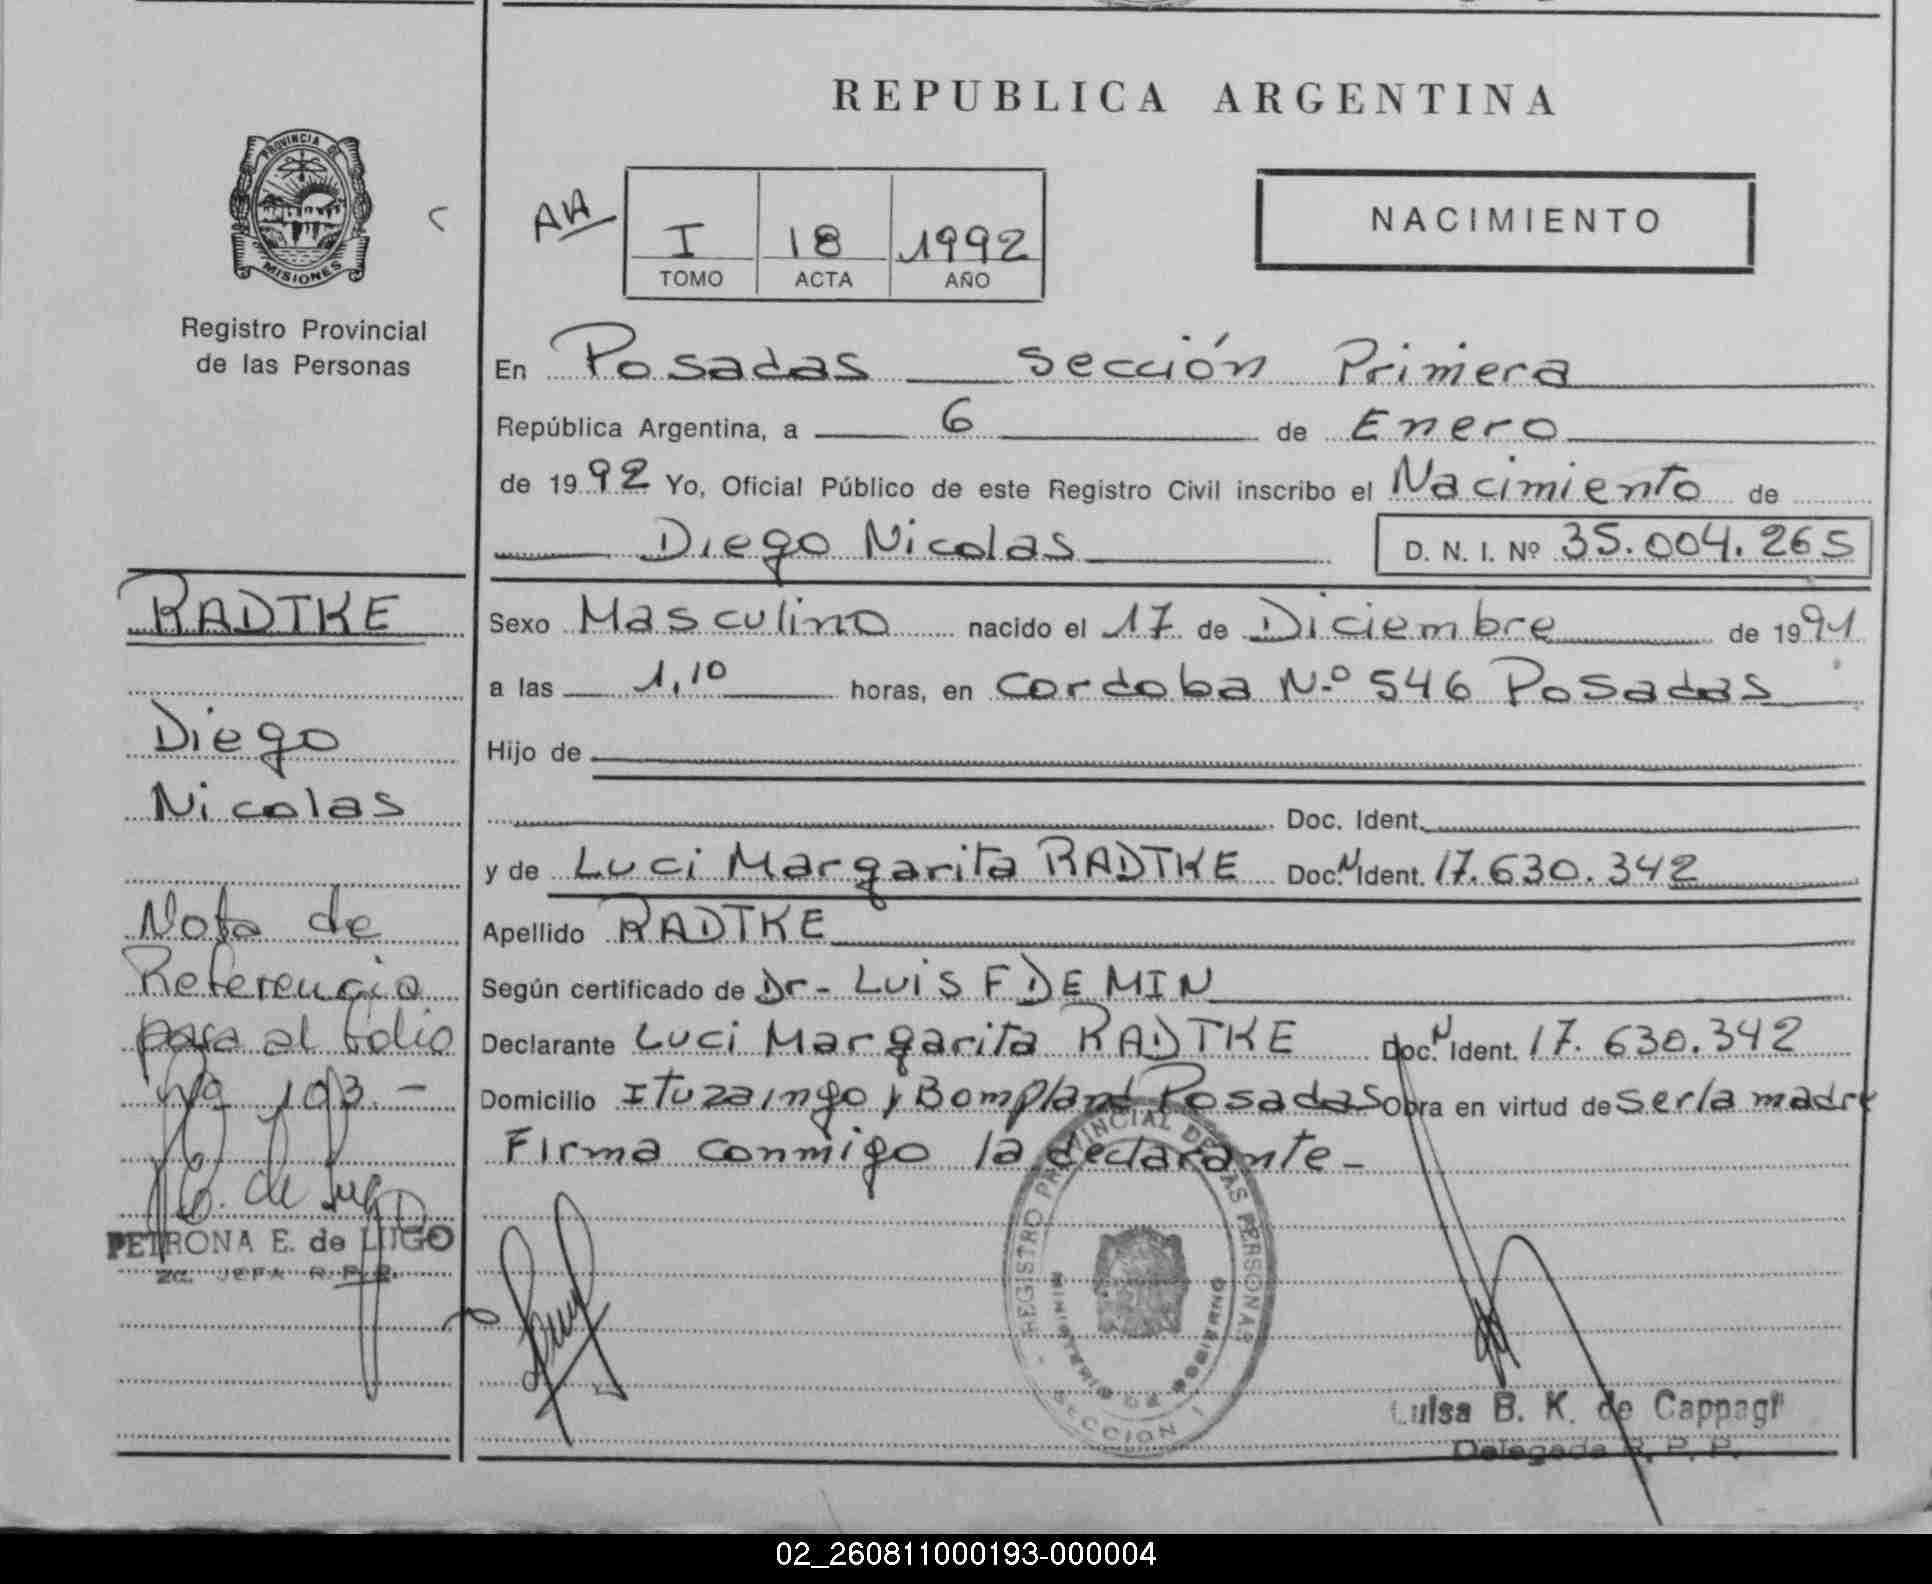 REPUBLICA ARGENTINA
PROVINCIA DE
MISIONES
Registro Provincial
de las Personas
I 18 1992
TOMO ACTA AÑO
NACIMIENTO
En Posadas sección Primera
República Argentina, a 6 de Enero
de 1992 Yo, Oficial Público de este Registro Civil inscribo el Nacimiento de
Diego Nicolas D. N. I. Nº 35.004.265
Sexo Masculino nacido el 17 de Diciembre de 1991
a las 1,10 horas, en Cordoba N.º 546 Posadas
Hijo de
Doc. Ident.
y de Luci Margarita RADTKE Doc. N Ident. 17.630.342
Apellido RADTKE
Según certificado de Dr- Luis F DE MIN
Declarante Luci Margarita RADTKE Doc. N Ident. 17.630.342
Domicilio Ituzaingo y Bompland Posadas Obra en virtud de ser la madre
Firma conmigo la declarante-
RADTKE
Diego
Nicolas
Nota de
Referencia
pasa al folio
Nº 193.-
PETRONA E. de LUGO
2a. JEFA R. P. P.
REGISTRO PROVINCIAL DE LAS PERSONAS
MINISTERIO DE GOBIERNO
SECCION 1
Luisa B. K. de Cappagli
Delegada R. P. P.
02_260811000193-000004